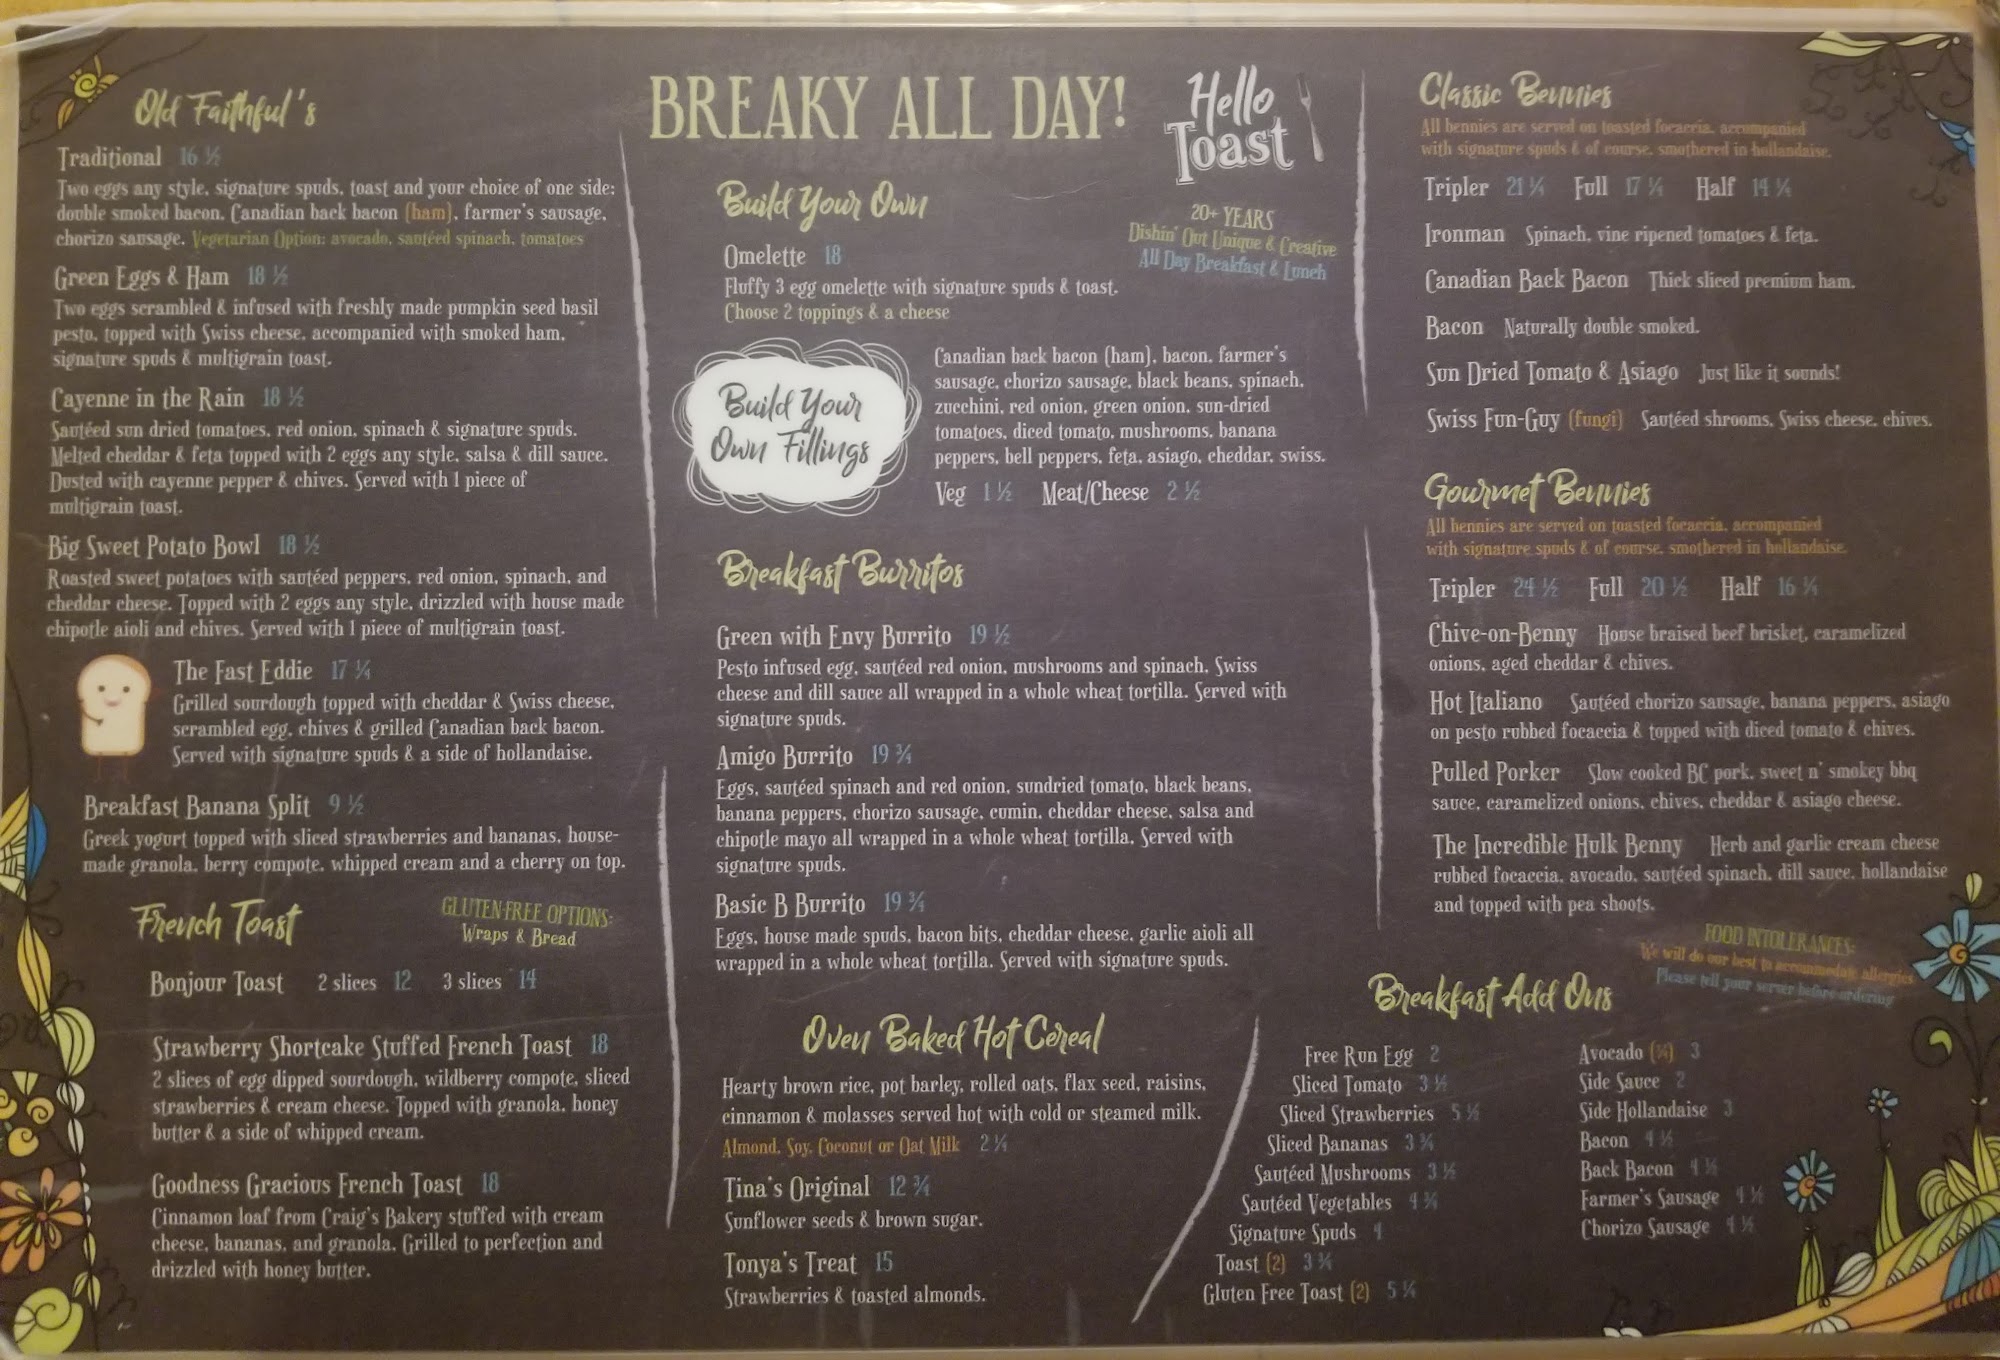 Old Faithful's
Traditional 16 ½
Two eggs any style, signature spuds, toast and your choice of one side:
double smoked bacon, Canadian back bacon (ham), farmer's sausage,
chorizo sausage. Vegetarian Option: avocado, sautéed spinach, tomatoes
Green Eggs & Ham 18 ½
Two eggs scrambled & infused with freshly made pumpkin seed basil
pesto, topped with Swiss cheese, accompanied with smoked ham,
signature spuds & multigrain toast.
Cayenne in the Rain 18 ½
Sautéed sun dried tomatoes, red onion, spinach & signature spuds.
Melted cheddar & feta topped with 2 eggs any style, salsa & dill sauce.
Dusted with cayenne pepper & chives. Served with 1 piece of
multigrain toast.
Big Sweet Potato Bowl 18 ½
Roasted sweet potatoes with sautéed peppers, red onion, spinach, and
cheddar cheese. Topped with 2 eggs any style, drizzled with house made
chipotle aioli and chives. Served with 1 piece of multigrain toast.
The Fast Eddie 17 ¼
Grilled sourdough topped with cheddar & Swiss cheese,
scrambled egg, chives & grilled Canadian back bacon.
Served with signature spuds & a side of hollandaise.
Breakfast Banana Split 9 ½
Greek yogurt topped with sliced strawberries and bananas, house-
made granola, berry compote, whipped cream and a cherry on top.
French Toast
GLUTEN-FREE OPTIONS:
Wraps & Bread
Bonjour Toast 2 slices 12 3 slices 14
Strawberry Shortcake Stuffed French Toast 18
2 slices of egg dipped sourdough, wildberry compote, sliced
strawberries & cream cheese. Topped with granola, honey
butter & a side of whipped cream.
Goodness Gracious French Toast 18
Cinnamon loaf from Craig's Bakery stuffed with cream
cheese, bananas, and granola. Grilled to perfection and
drizzled with honey butter.
BREAKY ALL DAY!
Hello
Toast
20+ YEARS
Dishin' Out Unique & Creative
All Day Breakfast & Lunch
Build Your Own
Omelette 18
Fluffy 3 egg omelette with signature spuds & toast.
Choose 2 toppings & a cheese
Build Your
Own Fillings
Canadian back bacon (ham), bacon, farmer's
sausage, chorizo sausage, black beans, spinach,
zucchini, red onion, green onion, sun-dried
tomatoes, diced tomato, mushrooms, banana
peppers, bell peppers, feta, asiago, cheddar, swiss.
Veg 1 ½ Meat/Cheese 2 ½
Breakfast Burritos
Green with Envy Burrito 19 ½
Pesto infused egg, sautéed red onion, mushrooms and spinach, Swiss
cheese and dill sauce all wrapped in a whole wheat tortilla. Served with
signature spuds.
Amigo Burrito 19 ¾
Eggs, sautéed spinach and red onion, sundried tomato, black beans,
banana peppers, chorizo sausage, cumin, cheddar cheese, salsa and
chipotle mayo all wrapped in a whole wheat tortilla. Served with
signature spuds.
Basic B Burrito 19 ¾
Eggs, house made spuds, bacon bits, cheddar cheese, garlic aioli all
wrapped in a whole wheat tortilla. Served with signature spuds.
Oven Baked Hot Cereal
Hearty brown rice, pot barley, rolled oats, flax seed, raisins,
cinnamon & molasses served hot with cold or steamed milk.
Almond, Soy, Coconut or Oat Milk 2 ¼
Tina's Original 12 ¾
Sunflower seeds & brown sugar.
Tonya's Treat 15
Strawberries & toasted almonds.
Classic Bennies
All bennies are served on toasted focaccia, accompanied
with signature spuds & of course, smothered in hollandaise.
Tripler 21 ¼ Full 17 ¼ Half 14 ¼
Ironman Spinach, vine ripened tomatoes & feta.
Canadian Back Bacon Thick sliced premium ham.
Bacon Naturally double smoked.
Sun Dried Tomato & Asiago Just like it sounds!
Swiss Fun-Guy (fungi) Sautéed shrooms, Swiss cheese, chives.
Gourmet Bennies
All bennies are served on toasted focaccia, accompanied
with signature spuds & of course, smothered in hollandaise.
Tripler 24 ½ Full 20 ½ Half 16
Chive-on-Benny House braised beef brisket, caramelized
onions, aged cheddar & chives.
Hot Italiano Sautéed chorizo sausage, banana peppers, asiago
on pesto rubbed focaccia & topped with diced tomato & chives.
Pulled Porker Slow cooked BC pork, sweet n' smokey bbq
sauce, caramelized onions, chives, cheddar & asiago cheese.
The Incredible Hulk Benny Herb and garlic cream cheese
rubbed focaccia, avocado, sautéed spinach, dill sauce, hollandaise
and topped with pea shoots.
FOOD INTOLERANCES:
We will do our best to accommodate allergies
Please tell your server before ordering
Breakfast Add Ons
Free Run Egg 2
Sliced Tomato 3 ½
Sliced Strawberries 5 ½
Sliced Bananas 3 ¾
Sautéed Mushrooms 3 ½
Sautéed Vegetables 4 ¾
Signature Spuds 4
Toast (2) 3 ¾
Gluten Free Toast (2) 5 ¼
Avocado 3
Side Sauce 2
Side Hollandaise 3
Bacon 4 ½
Back Bacon 4 ½
Farmer's Sausage 4 ½
Chorizo Sausage 4 ½